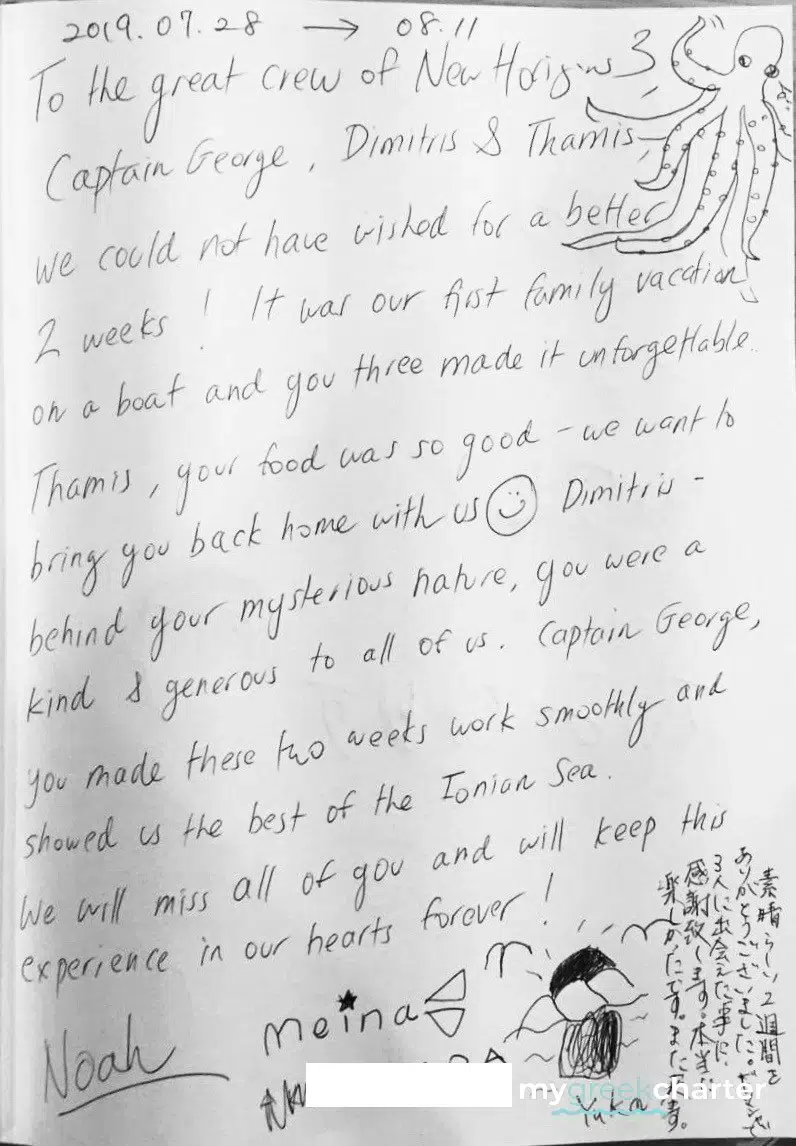 2019.07.28 → 08.11
To the great crew of New Horizons 3
Captain George, Dimitris & Thamis
We could not have wished for a better
2 weeks! It was our first family vacation
on a boat and you three made it unforgettable.
Thamis, your food was so good - we want to
bring you back home with us Dimitris -
behind your mysterious nature, you were a
kind & generous to all of us. Captain George,
you made these two weeks work smoothly and
showed us the best of the Ionian Sea.
We will miss all of you and will keep this
experience in our hearts forever!
素晴らしい2週間を
ありがとうございました。
3人に出会えた事に
感謝致します。本当に
楽しかったです。また
meina
Noah
Yuka
mygreekcharter